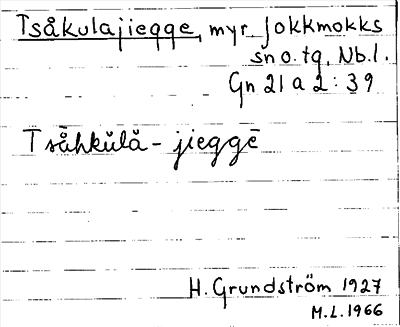 Tsåkulajiegge, myr Jokkmokks
sn o. tg, Nb.l.
Gn 21 a 2:39
Tsåhkŭlå-jieggē
H. Grundström 1927
M.L. 1966